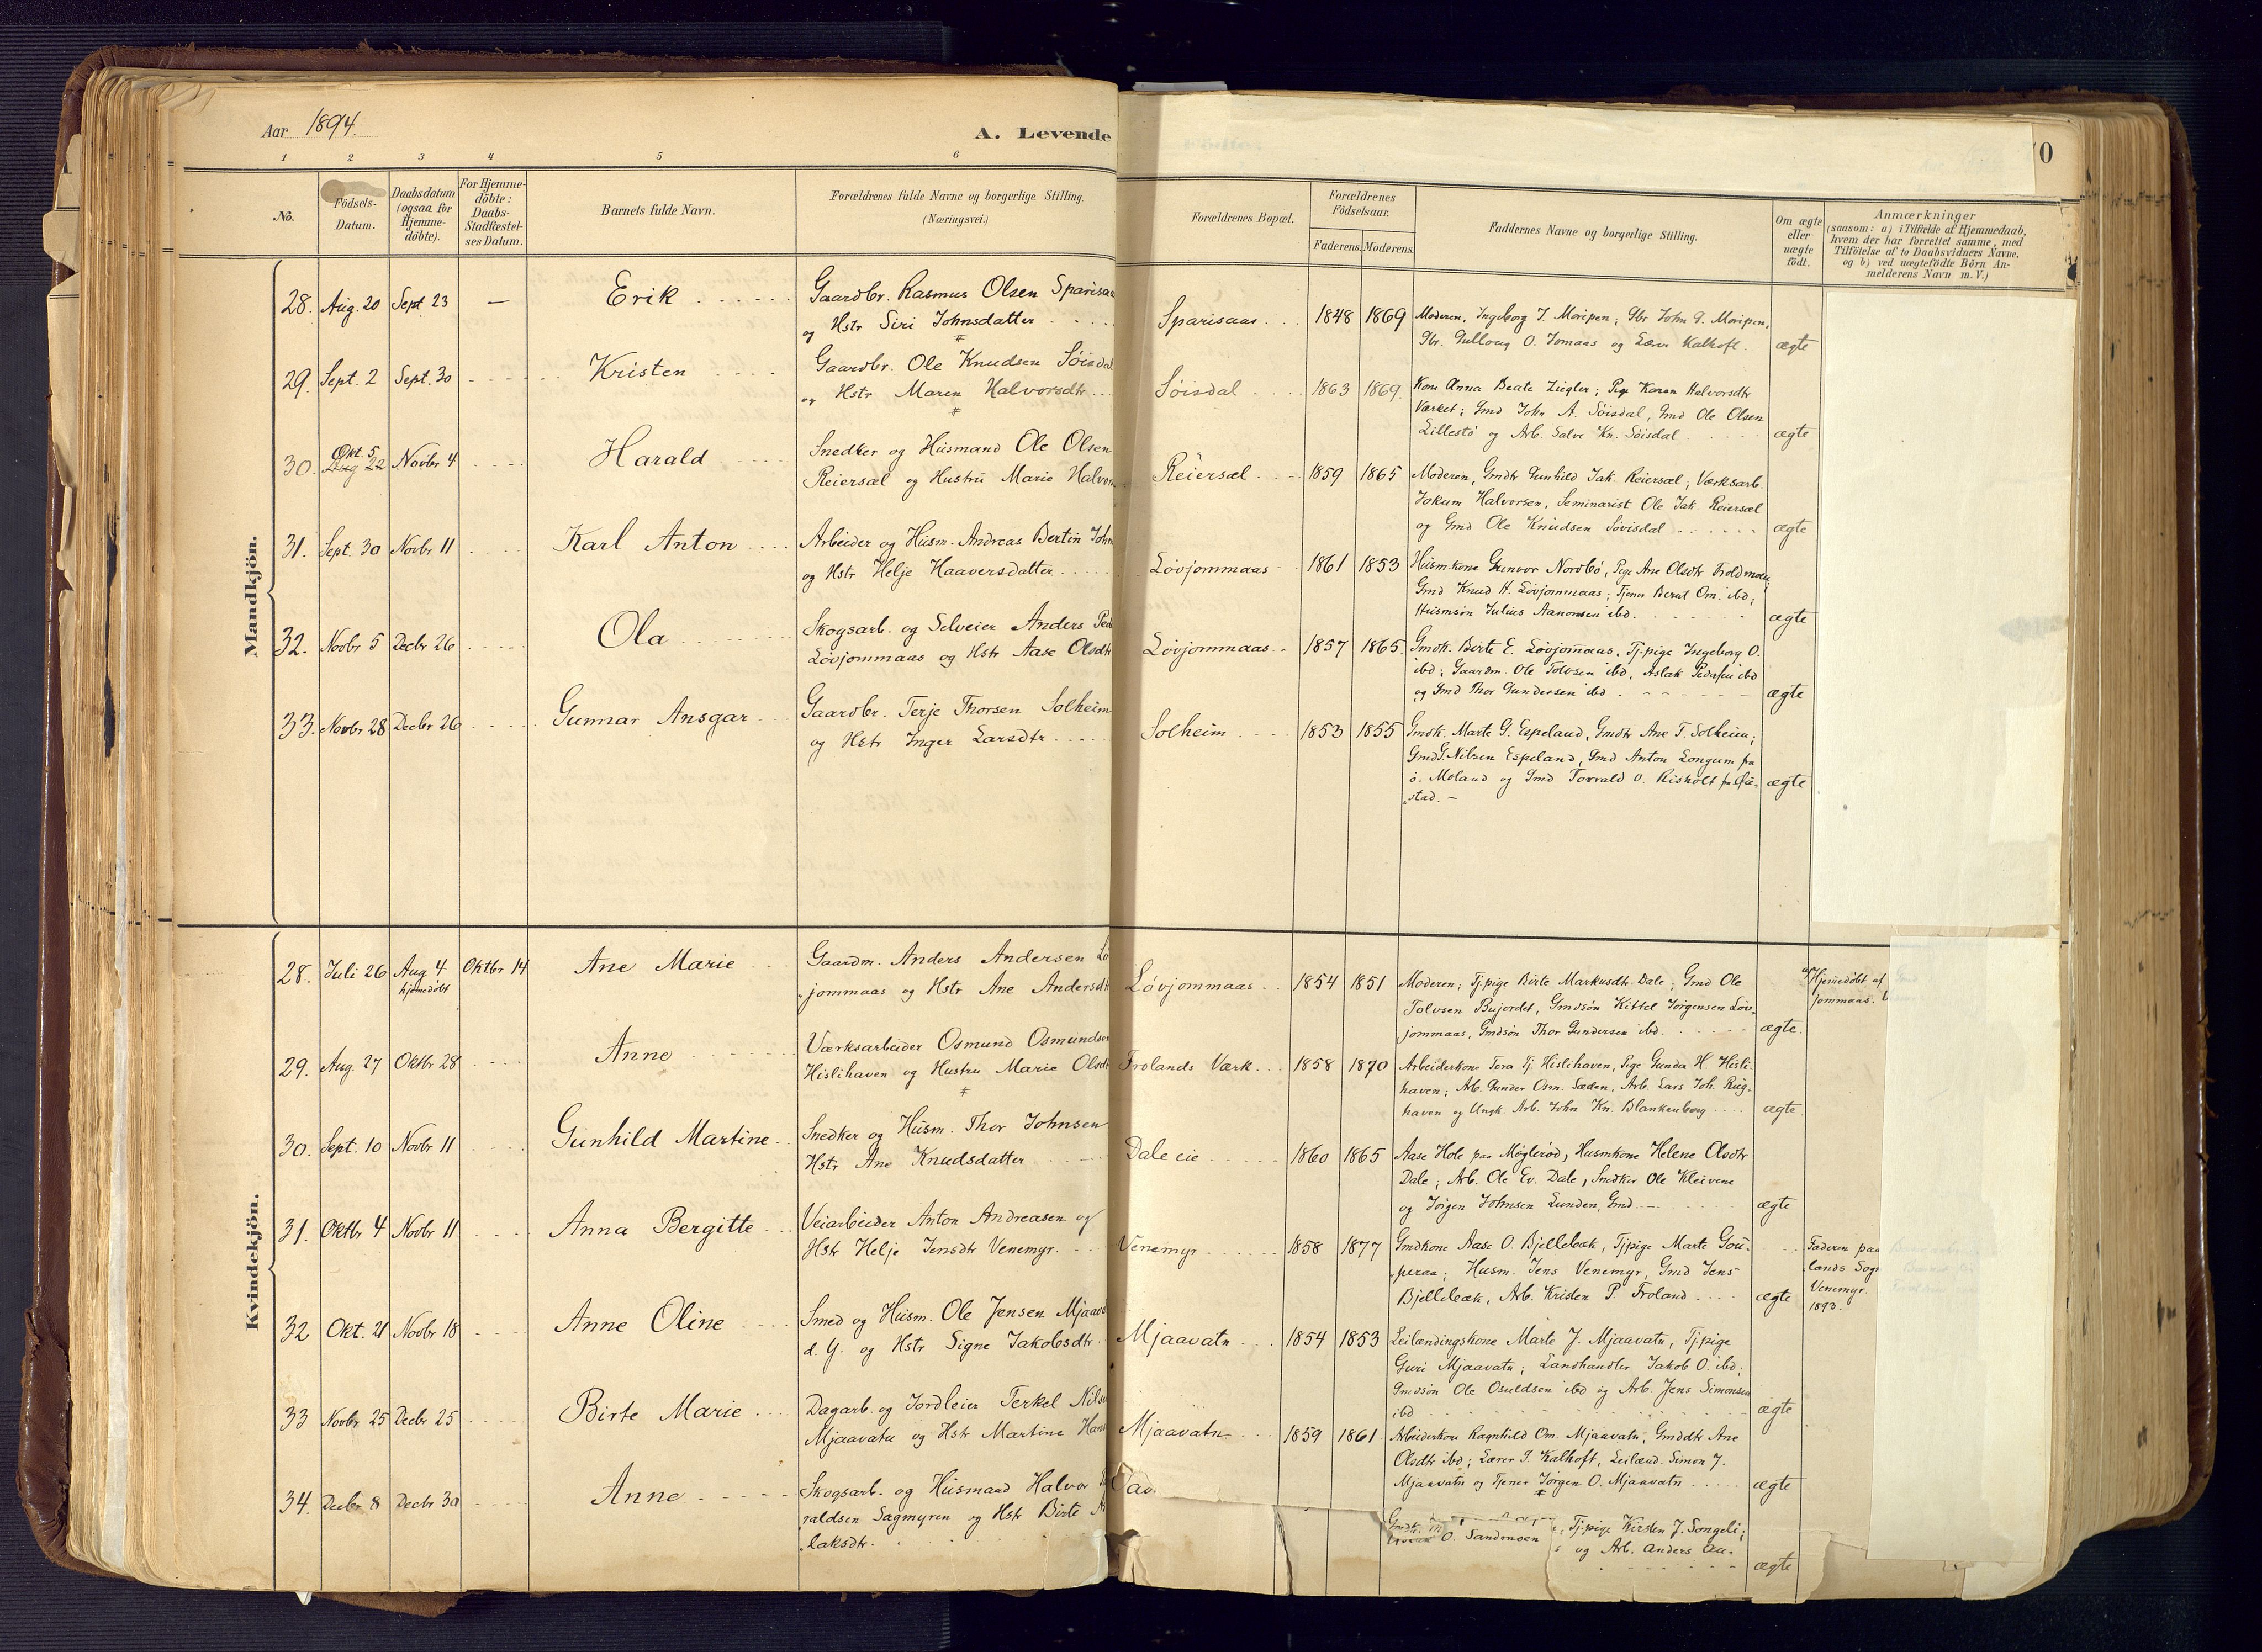 Aar 1894.
A. Levende
70
1 2 3 4 5 6
No.
Födsels-
Datum.
Daabsdatum
(ogsaa for
Hjemme-
döbte).
For Hjemme-
döbte:
Daabs-
Stadfæstel-
ses Datum.
Barnets fulde Navn.
Forældrenes fulde Navne og borgerlige Stilling.
(Næringsvei.)
Forældrenes Bopæl.
Forældrenes
Födselsaar.
Faderens. Moderens.
Faddernes Navne og borgerlige Stilling.
Om ægte
eller
uægte
födt.
Anmærkninger
(saasom: a) i Tilfælde af Hjemmedaab,
hvem der har forrettet samme, med
Tilföielse af to Daabsvidners Navne.
og b) ved uægtefödte Börn An-
melderens Navn m. V.)
Mandkjön.
28. Aug. 20 Sept. 23 — Erik
Gaardbr. Rasmus Olsen Sparisaa
og Hstr Siri Johnsdatter
Sparisaas 1848 1869
Moderen, Ingeborg J. Moripen; Gbr John G. Moripen,
Gbr. Gullaug O. Jomaas og Lærer Kalhoft. ægte
29. Sept. 2 Sept. 30 Kristen
Gaardbr. Ole Knudsen Söisdal
og Hstr Maren Halvorsdtr
Söisdal 1863 1869.
Kone Anna Beate Ziegler; Pige Karen Halvorsdtr
Værket; Gmd John A. Söisdal, Gmd Ole Olsen
Lillestö og Arb. Salve Kn. Söisdal ægte
30. Okt. 5 Novbr 4 Harald
Snedker og Husmand Ole Olsen
Reiersæl og Hustru Marie Halvor
Reiersæl 1859 1865
Moderen, Gmdtr Gunhild Jak. Reiersæl; Værksarb.
Jokum Halvorsen, Seminarist Ole Jak. Reiersæl
og Gmd Ole Knudsen Søvisdal ægte
31. Sept. 30 Novbr 11 Karl Anton
Arbeider og Husm. Andreas Bertin John
og Hstr Helje Haaversdatter
Lövjommaas 1861 1853
Husmkone Gunvor Nordbö, Pige Ane Olsdtr Troldmoen;
Gmd Knud H. Lövjommaas; Tjener Berut Om. ibd;
Husmsön Julius Aanonsen ibd. ægte
32. Novbr 5 Decbr 26 Ola
Skogsarb. og Selveier Anders Ped
Lövjommaas og Hstr Aase Olsdtr
Lövjommaas 1857 1865.
Gmdk. Birte E. Lövjomaas, Tj.pige Ingeborg O.
ibd; Gaardm. Ole Tolvsen ibd, Aslak Pedersen ibd
og Gmd Thor Gundersen ibd. ægte
33. Novbr 28 Decbr 26 Gunnar Ansgar
Gaardbr. Terje Thorsen Solheim
og Hstr Inger Larsdtr
Solheim 1853 1855
Gmdk. Marte G. Espeland, Gmdtr Ane T. Solheim;
Gmd G. Nilsen Espeland, Gmd Anton Longum fra
ö. Moland og Gmd Torvald O. Risholt fr. Öie-
stad. — ægte
Kvindekjön.
28. Juli 26 Aug 4 Oktbr 14 Ane Marie
hjemedöbt
Gaardm. Anders Andersen Lö
jommaas og Hstr Ane Andersdt
Lövjommaas 1854 1851
Moderen; Tj.pige Birte Markusdtr Dale; Gmd Ole
Tolvsen Bujordet, Gmdsön Kittel Jörgensen Löv-
jommaas, Gmdsön Thor Gundersen ibd. ægte.
Hjemedöbt af
jommaas.
29. Aug. 27 Oktbr 28 Anne
Værksarbeider Osmund Osmundsen
Hislihaven og Hustru Marie Olsdt
Frolands Værk 1858 1870
Arbeiderkone Tora Tj. Hislihaven, Pige Gunda H. Hisli-
haven; Arb. Gunder Osm. Sæden, Arb. Lars Joh. Rug-
haven og Ungk. Arb. John Kn. Blankenborg ægte
30. Sept. 10 Novbr 11 Gunhild Martine
Snedker og Husm. Thor Johnsen
Hstr Ane Knudsdatter
Dale eie 1860 1865
Aase Hole paa Möglerød, Husmkone Helene Olsdtr
Dale; Arb. Ole Ev. Dale, Snedker Ole Kleivene
og Jörgen Johnsen Lunden, Gmd. ægte
31. Oktbr 4 Novbr 11 Anna Bergitte
Veiarbeider Anton Andreasen og
Hstr Helje Jensdtr Venemyr.
Venemyr 1858 1877
Gmdkone Aase O. Bjellebæk, Tjpige Marte Gou-
peraa; Husm. Jens Venemyr, Gmd Jens
Bjellebæk, Arb. Kristen P. Froland ægte
Faderen paa
lands Sogn
Venemyr.
1893.
32 Okt. 21 Novbr 18 Anne Oline
Smed og Husm. Ole Jensen Mjaava
d. Y. og Hstr Signe Jakobsdtr
Mjaavatn 1854 1853
Leilændingskone Marte J. Mjaavatn, Tj.pige
Guri Mjaavatn; Landhandler Jakob O. ibd;
Gmdsön Ole Osuldsen ibd og Arb. Jens Simonsen
ibd ægte
33 Novbr 25 Decbr 25 Birte Marie
Dagarb. og Jordleier Terkel Nils
Mjaavatn og Hstr Martine Han
Mjaavatn 1859 1861
Arbeiderkone Ragnhild Om. Mjaavatn, Gmddtr Ane
Olsdtr ibd; Lærer S. Kalhoft, Leilænd. Simon J.
Mjaavatn og Tjener Jörgen O. Mjaavatn ægte
34. Decbr 8 Decbr 30 Anne
Skogsarb. og Husmand Halvor
raldsen Sagmyren og Hstr Birte A
laksdtr.
Tj.pige Kirsten J. Songeli;
O. Sandmoen og Arb. Anders
ægte